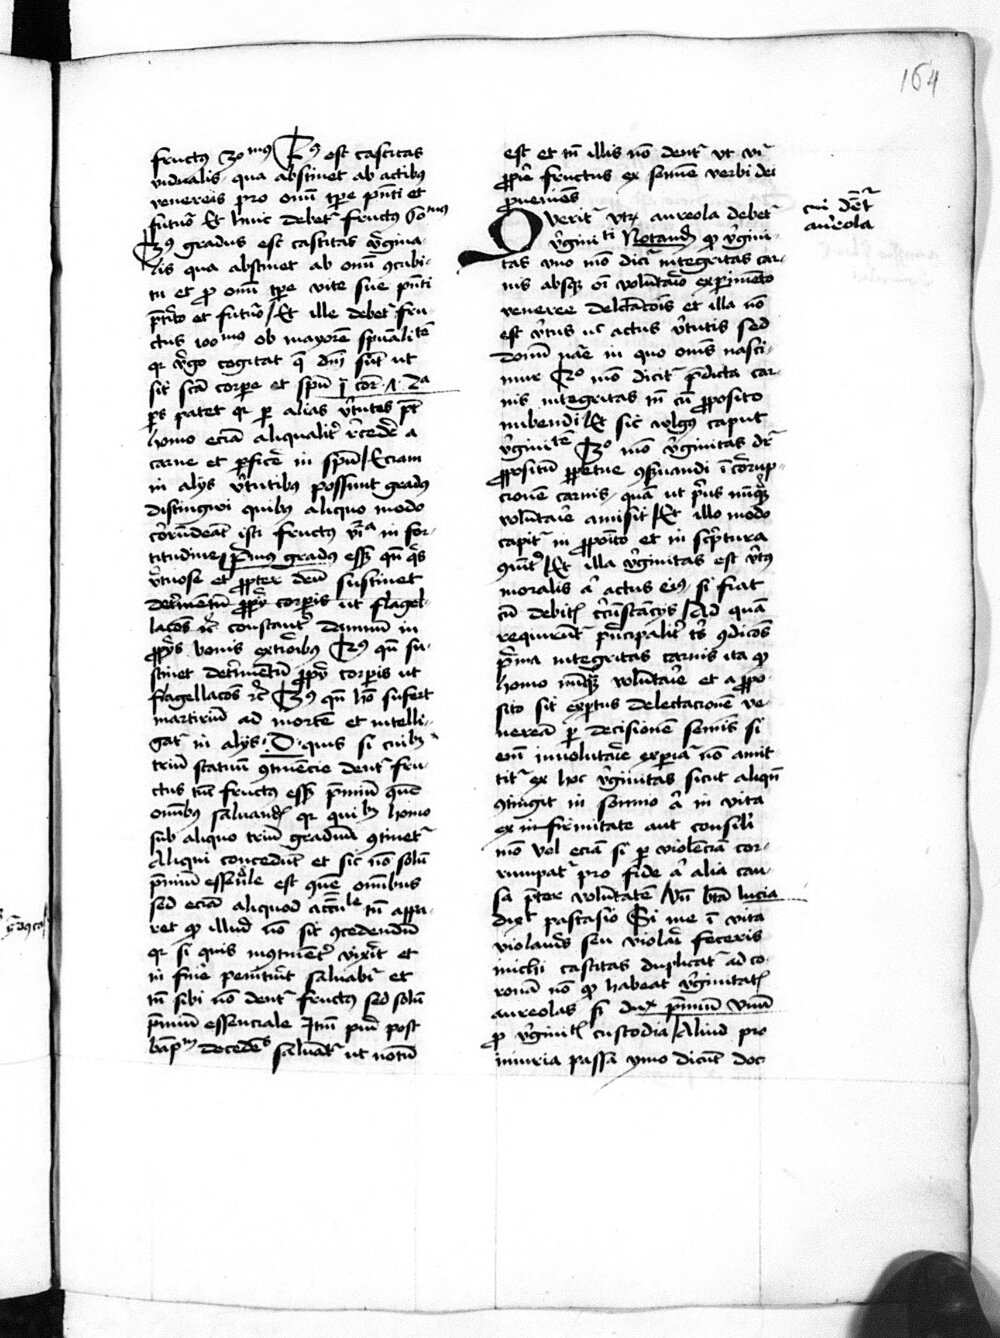 164
fructus 30mus 2us est castitas
vidualis qua abstinet ab actibus
venereis pro omni tpe pnti et
futuro Et huic debetr fructus 60mus
3us gradus est castitas virgina
lis qua abstinet ab omni 9cubi
tu et pro omni tpe vite sue pnti
ptito et futuro Et ille debetr fru
ctus 100mus ob maiorem spualitem
qr virgo cogitat que dni sunt ut
sit scta corpore et spu i cor 7 2a
ps patet qr per alias virtutes pt
homo eciam aliqualiter recedere a
carne et perficere in spu Eciam
in alijs virtutibus possunt gradus
distingwi quibus aliquo modo
correndeant isti fructus vt in for
titudine primus gradus esset quando quis
virtuose et propter deum sustinet
detrimentum proprij corporis ut flagel
lacoes rc constanter damnum in
proprijs bonis exterioribus 2us quando su
stinet detrimentum proprij corporis ut
flagellacoes rc 3us quando homo sufert
martirium ad mortem et intelli
gatur in alijs D quis si cuilibet
trium statuum 9tinencie detur fru
ctus tunc fructus esset premium quo
omnibus saluandis qr quilibet homo
sub aliquo trium graduum 9tinetur
Aliqui concedunt et sic non solum
premium essenciale est quod omnibus
sed eciam aliquod acctale tamen appa
ret quod illud non sit 9cedendum
qr si quis incontinenter vixerit et
in fine peniteat saluabitur et
tamen sibi non detur fructus sed solum
premium essenciale Item pueri post
baptm decedentes saluantur ut notum
est et tamen illis non detur ut videtur
proprie fructus ex semine verbi dei
proueniens
cui detur
aureola
Queritur utrum aureola debetur
virginitati Notandum quod virgini
tas uno modo dicitur integritas car
nis absque omni voluntario experimento
veneree delectacionis et illa non
est virtus nec actus virtutis sed
donum nature in quo omnes nasci
mur 2o modo dicitur predicta car
nis integritas tamen cum proposito
nubendi Et sic vulgus caput
virginitatem 3o modo virginitas dr
propositum perpetue 9seruandi incorrup
cionem carnis quam ut prius nunquam
voluntarie amisit Et illo modo
capitur in proposito et in scriptura
9muniter Et illa virginitas est virtus
moralis aut actus eius si fiat
cum debitis circumstancijs Ad quam
requiruntur principaliter tres 9diciones
prima integritas carnis ita quod
homo nunquam voluntarie et a propo
sito sit expertus delectacionem ve
neream per decisionem seminis si
enim involuntarie experiatur non amit
titur ex hoc virginitas sicut aliquando
9tingit in sompno aut in vita
ex infirmitate aut consili
modo vel eciam si per violenciam cor
rumpatur pro fide aut alia cau
sa preter voluntatem Unde beata lucia
dixit pascasio Si me inuita
violandam seu violari feceris
michi castitas duplicatur ad co
ronam non quod habeat virginitatis
aureolas sed duplex premium unum
pro virginitatis custodia Aliud pro
iniuria passa ymo dicunt doc